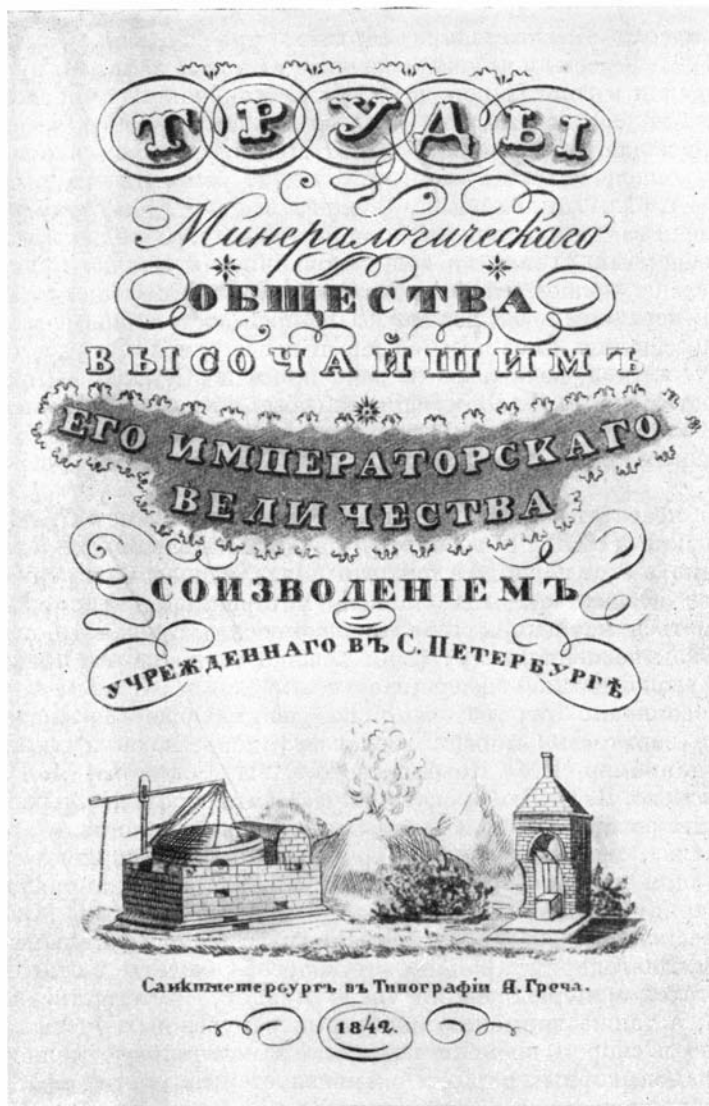 ТРУДЫ
Минералогическаго
ОБЩЕСТВА
ВЫСОЧАЙШИМЪ
ЕГО ИМПЕРАТОРСКАГО
ВЕЛИЧЕСТВА
СОИЗВОЛЕНІЕМЪ
УЧРЕЖДЕННАГО ВЪ С. ПЕТЕРБУРГѢ
Санктпетерсургъ въ Типографіи Я. Греча.
1842